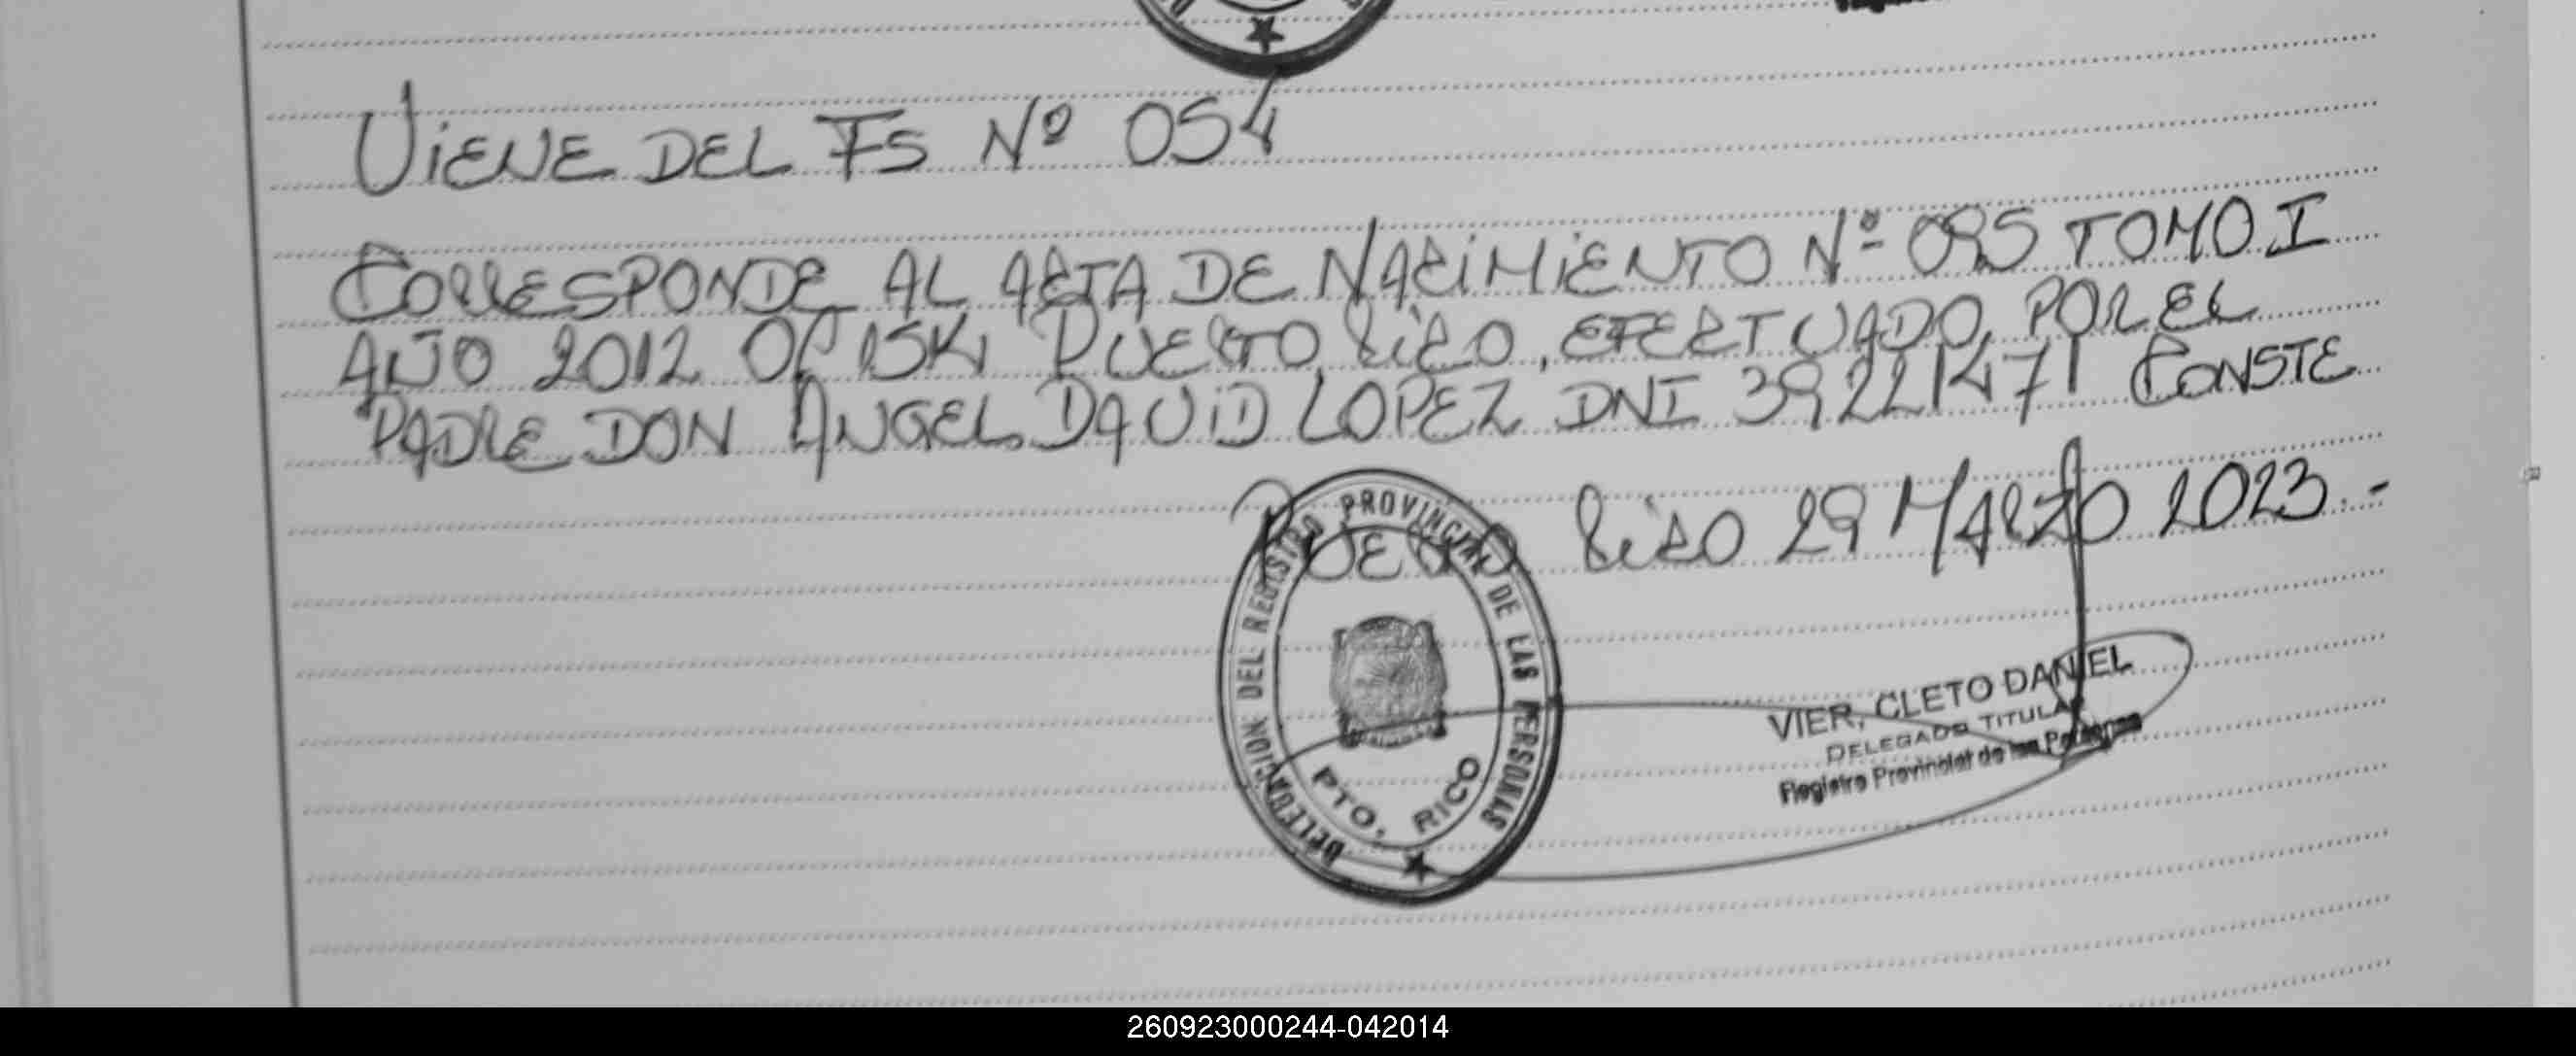 VIENE DEL FS Nº 054
CORRESPONDE AL ACTA DE NACIMIENTO Nº 095 TOMO I
AÑO 2012 PUERTO RICO, EFECTUADO POR EL
PADRE DON ANGEL DAVID LOPEZ DNI 39221471 CONSTE
PUERTO RICO 29 MARZO 2023.-
DELEGACION DEL REGISTRO PROVINCIAL DE LAS PERSONAS
PTO. RICO
VIER, CLETO DANIEL
DELEGADO TITULAR
Registro Provincial de las Personas
260923000244-042014